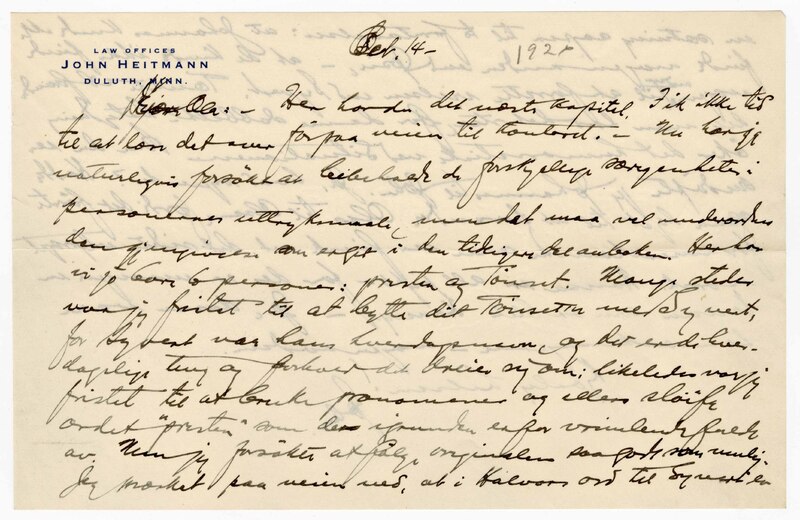 LAW OFFICES
JOHN HEITMANN
DULUTH, MINN.
Oct. 14 –
192
Kjære Ole: – Her har du det næste kapitel. Fik ikke tid
til at læse det over før paa veien til kontoret. – Nu har jeg
naturligvis forsökt at bibeholde de forskjellige særegenheter i
personernes uttryksmaate, men det maa vel underordnes
den gjengivelse som er git i den tidligere del av boken. Her har
vi jo bare to personer: presten og Tönset. Mange steder
var jeg fristet til at bytte dit Tönset'n med Syvert,
for Syvert var hans hverdagsnavn, og det er de hver-
dagslige ting og forhold det dreier sig om; likeledes var jeg
fristet til at bruke pronomener og ellers sløife
ordet "presten" som der igrunden er for vrimlende fuldt
av. Men jeg forsökte at følge originalen saa godt som mulig.
Jeg mærket paa veien ned, at i Halvors ord til Syvert er